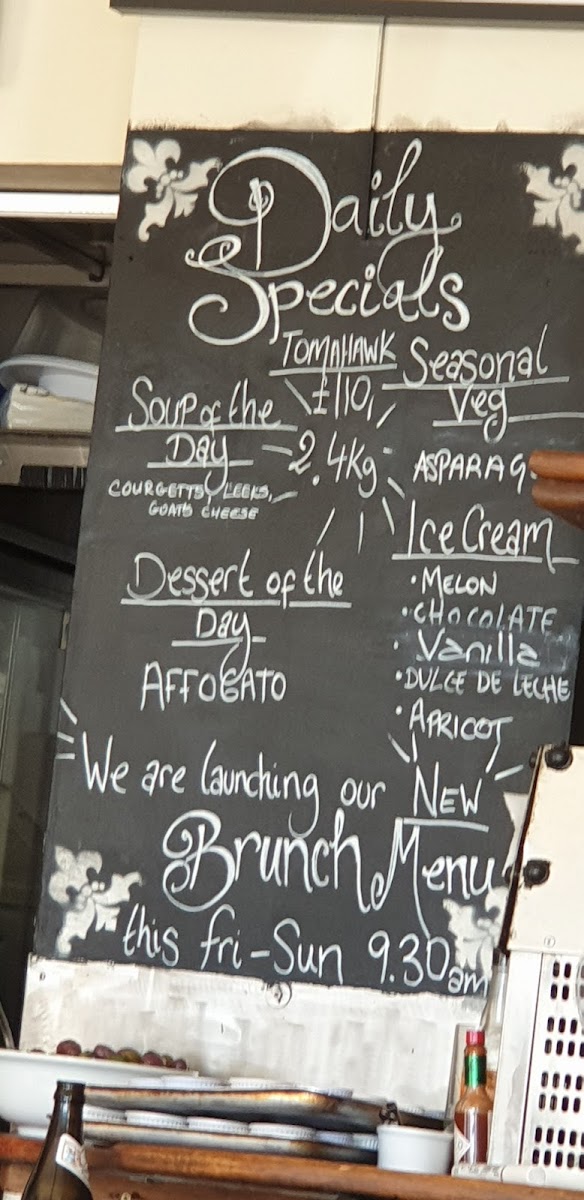 Daily
Specials
TOMAHAWK
£110,
2.4kg
Soup of the
Day
COURGETTS, LEEKS,
GOATS CHEESE
Seasonal
Veg
ASPARAG
Ice Cream
• MELON
• CHOCOLATE
• Vanilla
• DULCE DE LECHE
• APRICOT
Dessert of the
Day
AFFOGATO
We are launching our NEW
Brunch Menu
this Fri-Sun 9.30am